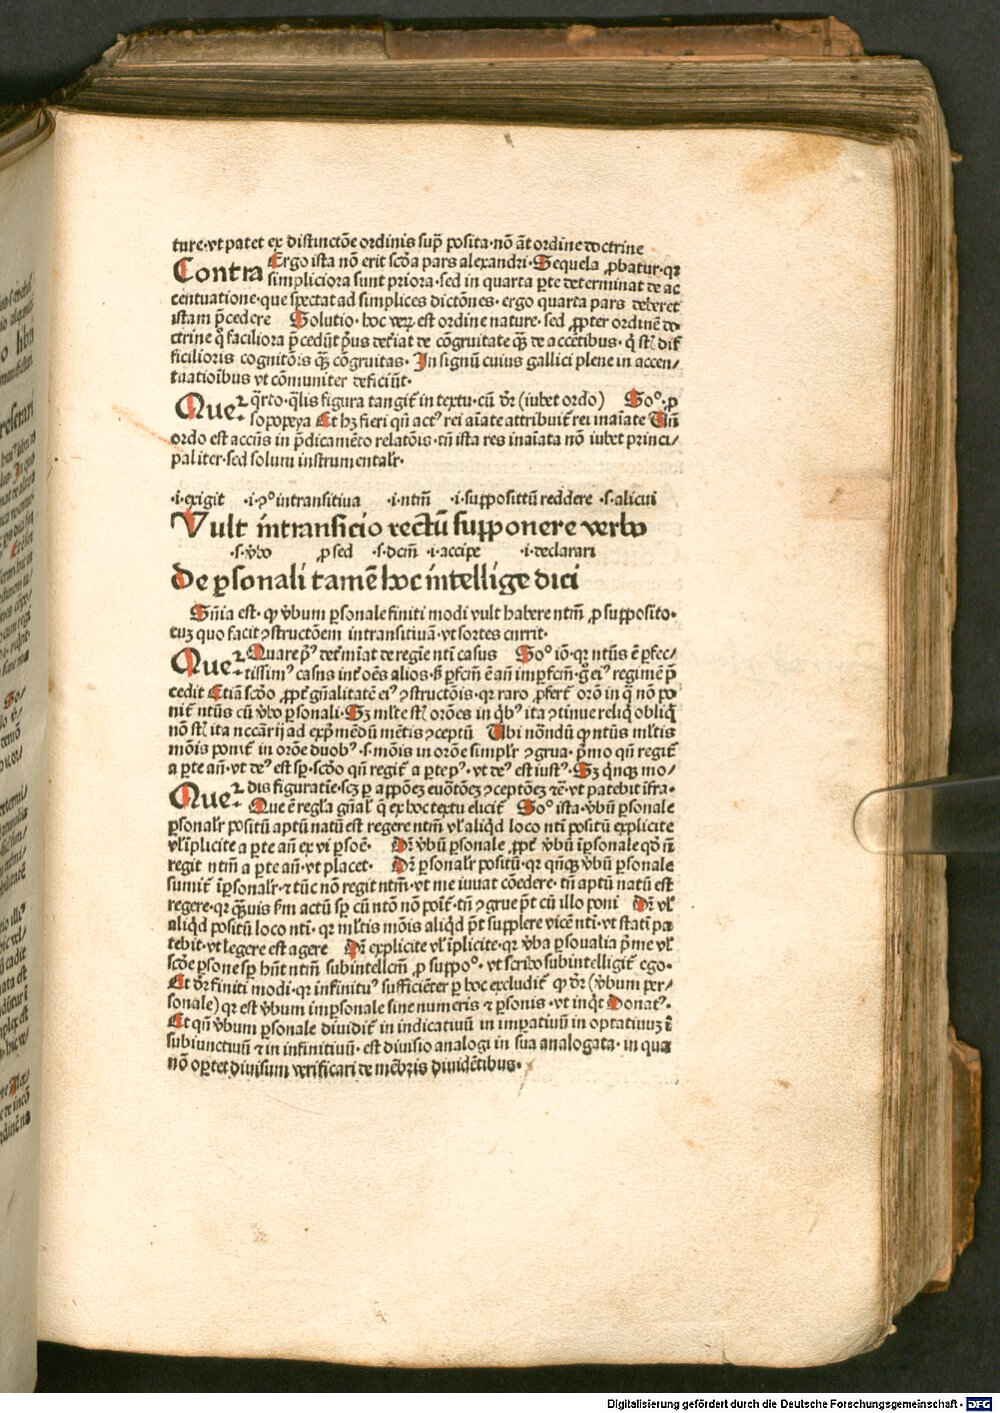 ture·vt patet ex distinctōe ordinis sup̄ posita·nō āt ordine doctrine
Contra Ergo ista nō erit scōa pars alexandri·Sequela ꝓbatur·qꝛ
simpliciora sunt priora·sed in quarta ꝑte determinat de ac
centuatione·que spectat ad simplices dictōnes·ergo quarta pars deberet
istam p̄cedere Solutio·hoc veꝝ est ordine nature·sed ꝓpter ordinē do
ctrine q̄ faciliora p̄cedūt pꝰus det̄iat de cōgruitate qꝫ de accētibus·q̄ st̄ dif
ficilioris cognitōis qꝫ cōgruitas·In signū cuius gallici plene in accen/
tuatioībus vt cōmuniter deficiūt·
Queꝛ· q̄rto·q̄lis figura tangit̄ in textu·cū dr̄ (iubet ordo) Soᵒ·ꝓ
sopopeya Et hꝫ fieri qn̄ actꝰ rei aīate attribuit̄ rei inaīate Uñ
ordo est accn̄s in p̄dicamēto relatōis·tn̄ ista res inaīata nō iubet princi/
paliter·sed solum instrumentalr̄·
·i·exigit ·i·ꝯᵒ intransitiua ·i·ntm̄ ·i·suppositū reddere ·s·alicui
Vult intransicio rectū supponere verbo
·s·v̄bo ꝓ sed ·s·dcm̄ ·i·accipe ·i·declarari
De ꝑsonali tamē hoc intellige dici
Sn̄ia est·ꝙ v̄bum ꝑsonale finiti modi vult habere ntm̄ ꝓ supposito·
cuꝫ quo facit ꝯstructōem intransitiuā·vt sortes currit·
Queꝛ· Quare pꝰ det̄miat de regīe nti casus Soᵒ iō·qꝛ ntūs ē ꝑfec/
tissimꝰ casus int̄ oēs alios·s̄ ꝑfcm̄ ē an̄ imꝑfcm̄·g̊ eiꝰ regimē p̄
cedit Etiā scōo ꝓpt̄ gn̄alitatē eiꝰ ꝯstructōis·qꝛ raro ꝓfert̄ orō in q̄ nō po
nit̄ ntūs cū v̄bo ꝑsonali·Sꝫ ml̄te st̄ orōes in q̄bꝰ ita ꝯtinue reliq̄ obliq̄
nō st̄ ita nccārij ad exp̄mēdū mētis ꝯceptū Ubi nōndū ꝙ ntūs ml̄tis
mōis ponit̄ in orōe duobꝰ·s·mōis in orōe simplr̄ ꝯgrua·p̄mo qn̄ regit̄
a ꝑte an̄·vt deꝰ est sꝑ·scōo qn̄ regit̄ a ꝑte pꝰ·vt deꝰ est iustꝰ·Sꝫ q̄nqꝫ mo/
dis figuratīe·scꝫ ꝑ appōeꝫ euōtōeꝫ ꝯceptōeꝫ ⁊c̄·vt patebit īfra·
Queꝛ· Que ē regl̄a gn̄al̄ q̄ ex hoc textu elicit̄ Soᵒ ista·v̄bū ꝑsonale
ꝑsonalr̄ positū aptū natū est regere ntm̄ vl̄ aliq̄d loco nti positū explicite
vl̄ īplicite a ꝑte an̄ ex vi ꝑsoē· Dr̄ v̄bū ꝑsonale ꝓpt̄ v̄bū īꝑsonale qd̄ n̄
regit ntm̄ a ꝑte an̄·vt placet· Dr̄ ꝑsonalr̄ positū·qꝛ qn̄qꝫ v̄bū ꝑsonale
sumit̄ īꝑsonalr̄·⁊ tūc nō regit ntm̄·vt me iuuat cōedere·tn̄ aptū natū est
regere·qꝛ qꝫuis s̄m actū sꝑ cū ntō nō poīt̄·tn̄ ꝯgrue p̄t cū illo poni Dr̄ vl̄
aliq̄d positū loco nti·qꝛ ml̄tis mōis aliq̄d p̄t supplere vicē nti·vt stati pa
tebit·vt legere est agere Dr̄ explicite vl̄ īplicite·qꝛ v̄ba ꝑsonalia p̄me vl̄
scōe ꝑsone sꝑ hn̄t ntm̄ subintellcm̄ ꝓ suppoᵒ·vt scribo subintelligit̄ ego·
Et dr̄ finiti modi·qꝛ infinituꝰ sufficiēter ꝑ hoc excludit̄ ꝙ dr̄ (v̄bum per/
sonale) qꝛ est v̄bum imꝑsonale sine numeris ⁊ ꝑsonis·vt inq̄t Donatꝰ·
Et qn̄ v̄bum ꝑsonale diuidit̄ in indicatiuū in imꝑatiuū in optatiuuꝫ ī
subiunctiuū ⁊ in infinitiuū·est diuisio analogi in sua analogata·in qua
nō oꝑtet diuisum verificari de mēbris diuidētibus·
Digitalisierung gefördert durch die Deutsche Forschungsgemeinschaft - DFG